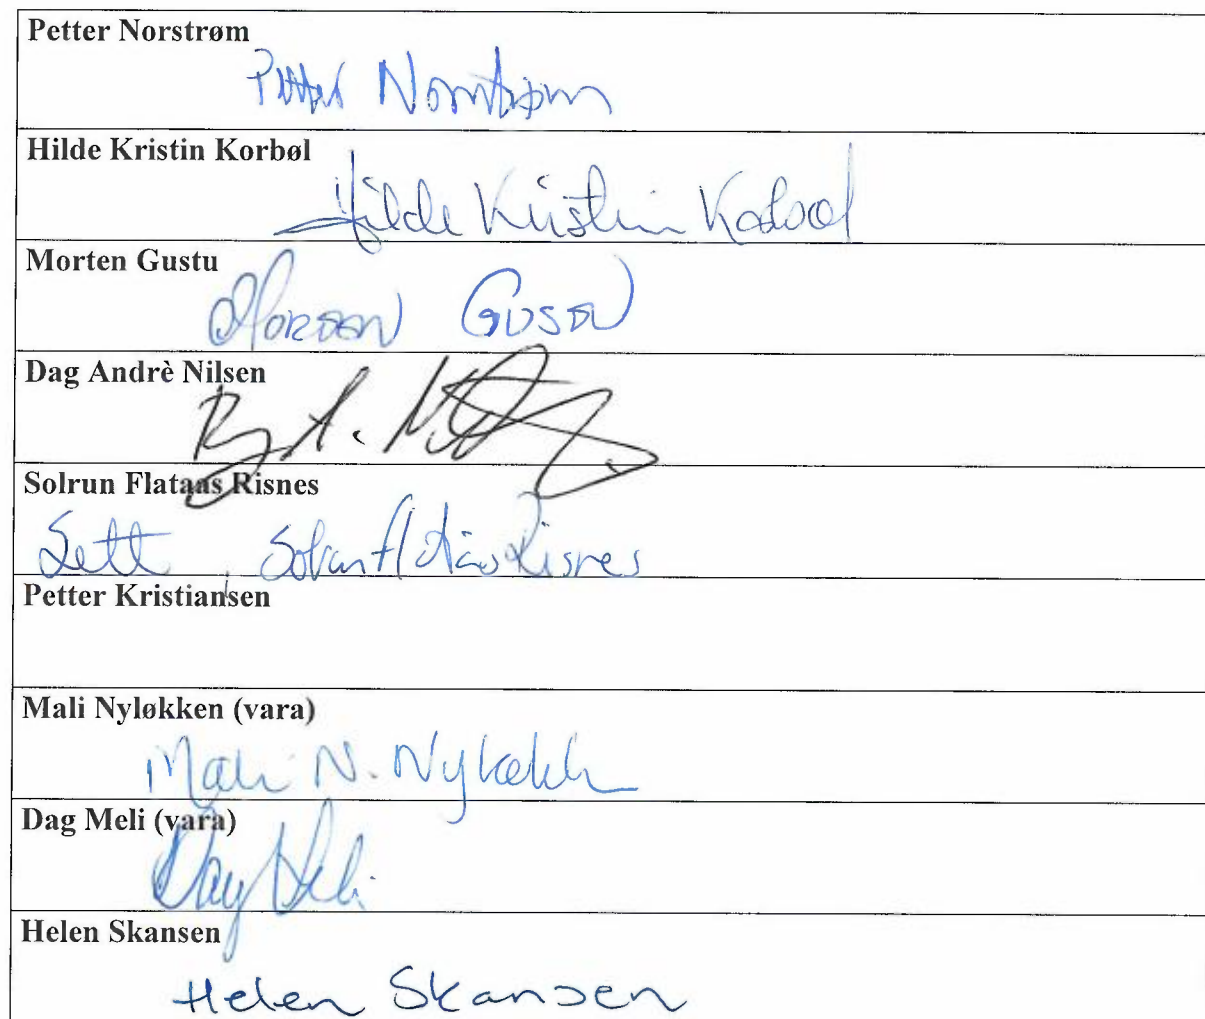 Petter Norstrøm
Petter Norstrøm
Hilde Kristin Korbøl
Hilde Kristin Korbøl
Morten Gustu
Dag Andrè Nilsen
Solrun Flataas Risnes
Sett Solrun Flataas Risnes
Petter Kristiansen
Mali Nyløkken (vara)
Mali N. Nyløkken
Dag Meli (vara)
Dag Meli
Helen Skansen
Helen Skansen